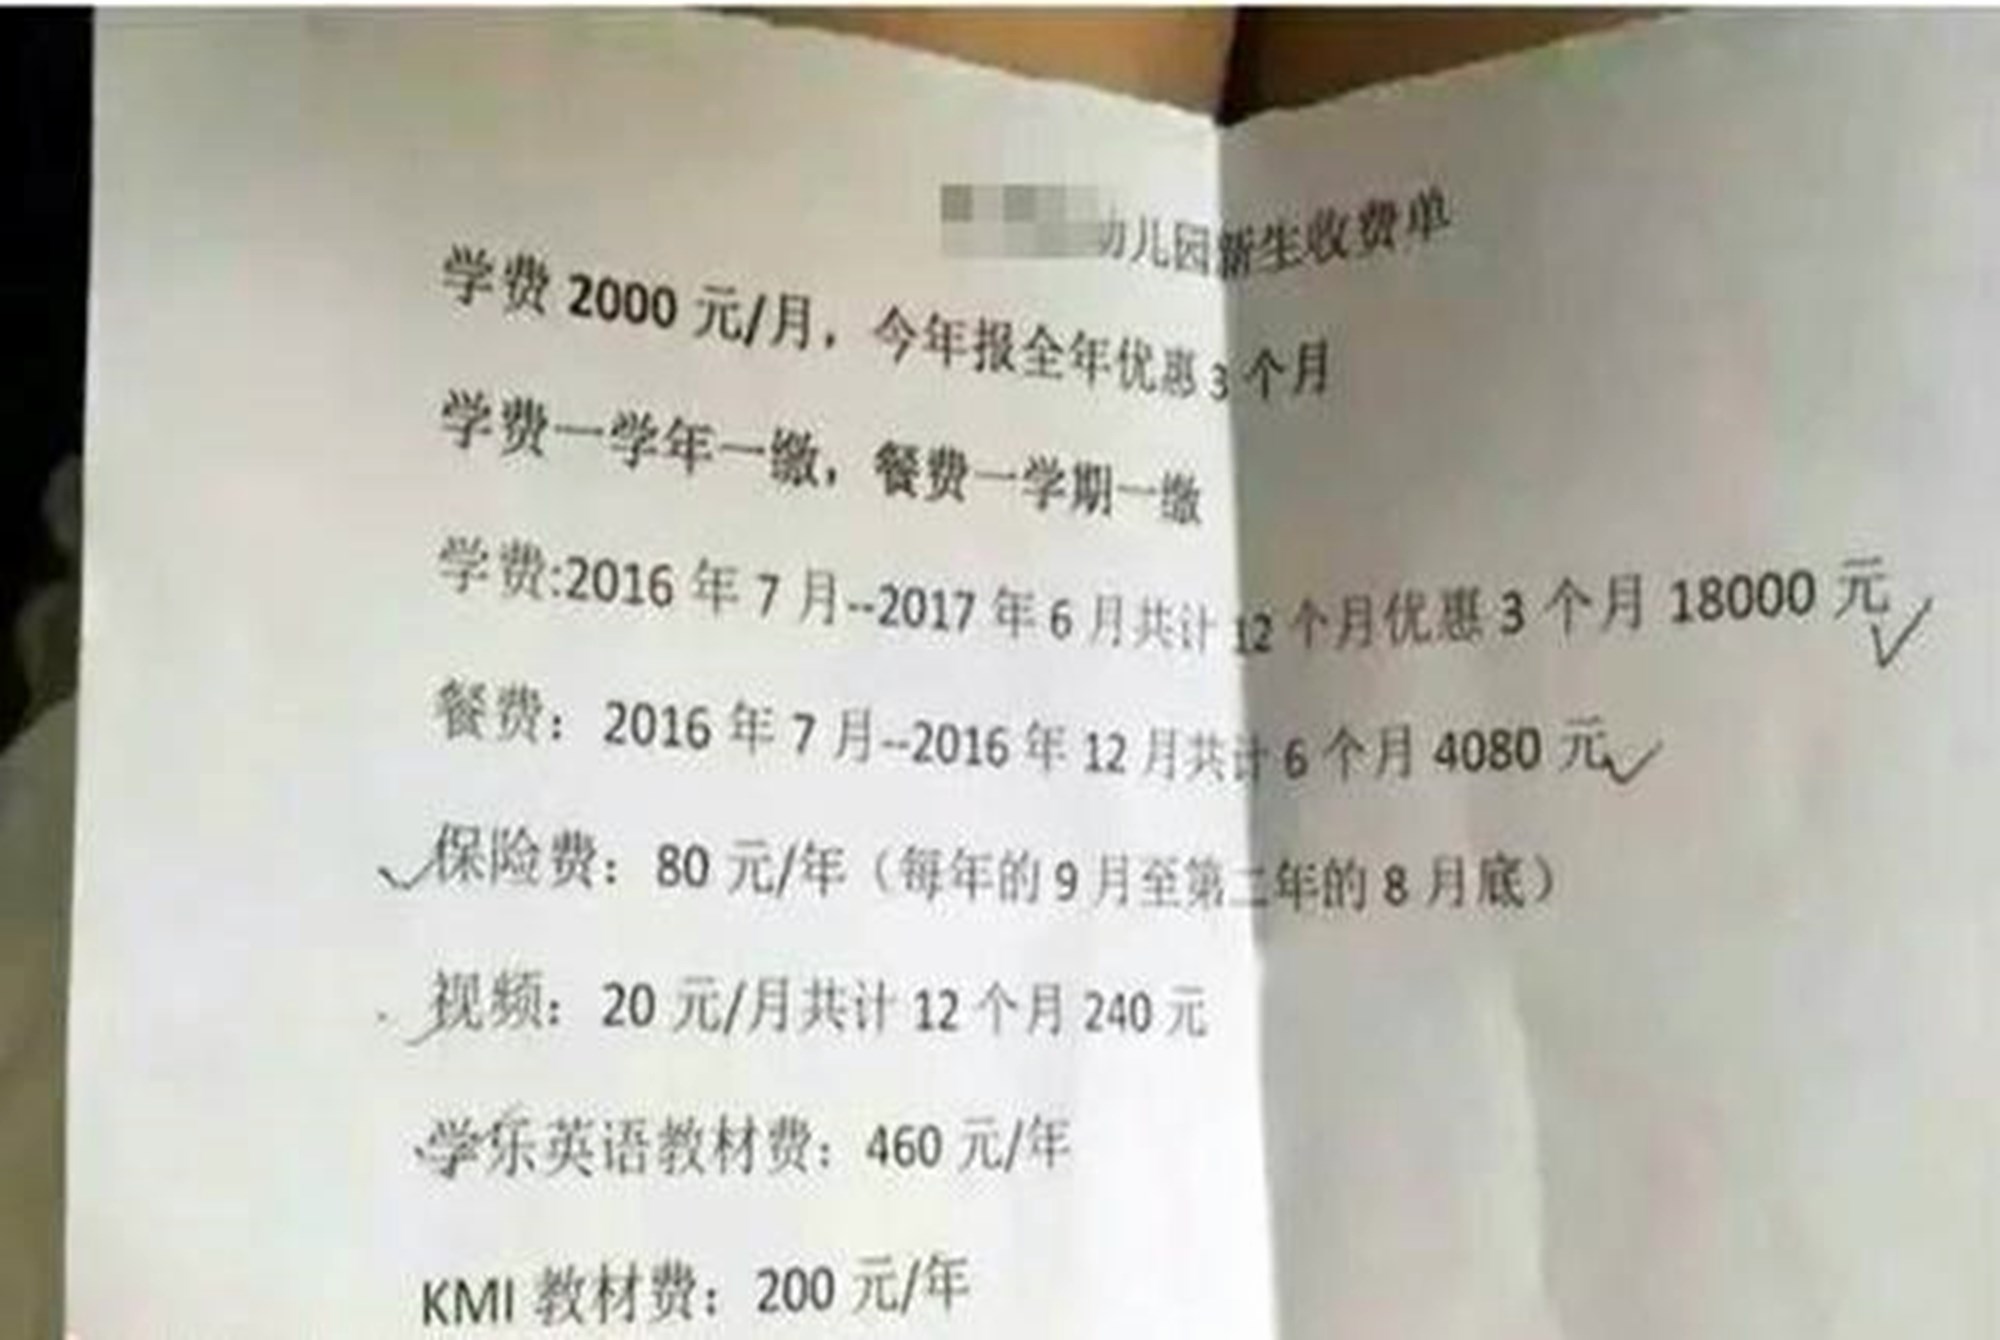 幼儿园新生收费单
学费 2000 元/月，今年报全年优惠 3 个月
学费一学年一缴，餐费一学期一缴
学费:2016 年 7 月--2017 年 6 月共计 12 个月优惠 3 个月 18000 元
餐费：2016 年 7 月--2016 年 12 月共计 6 个月 4080 元
保险费：80 元/年（每年的 9 月至第二年的 8 月底）
视频：20 元/月共计 12 个月 240 元
学乐英语教材费：460 元/年
KMI 教材费：200 元/年